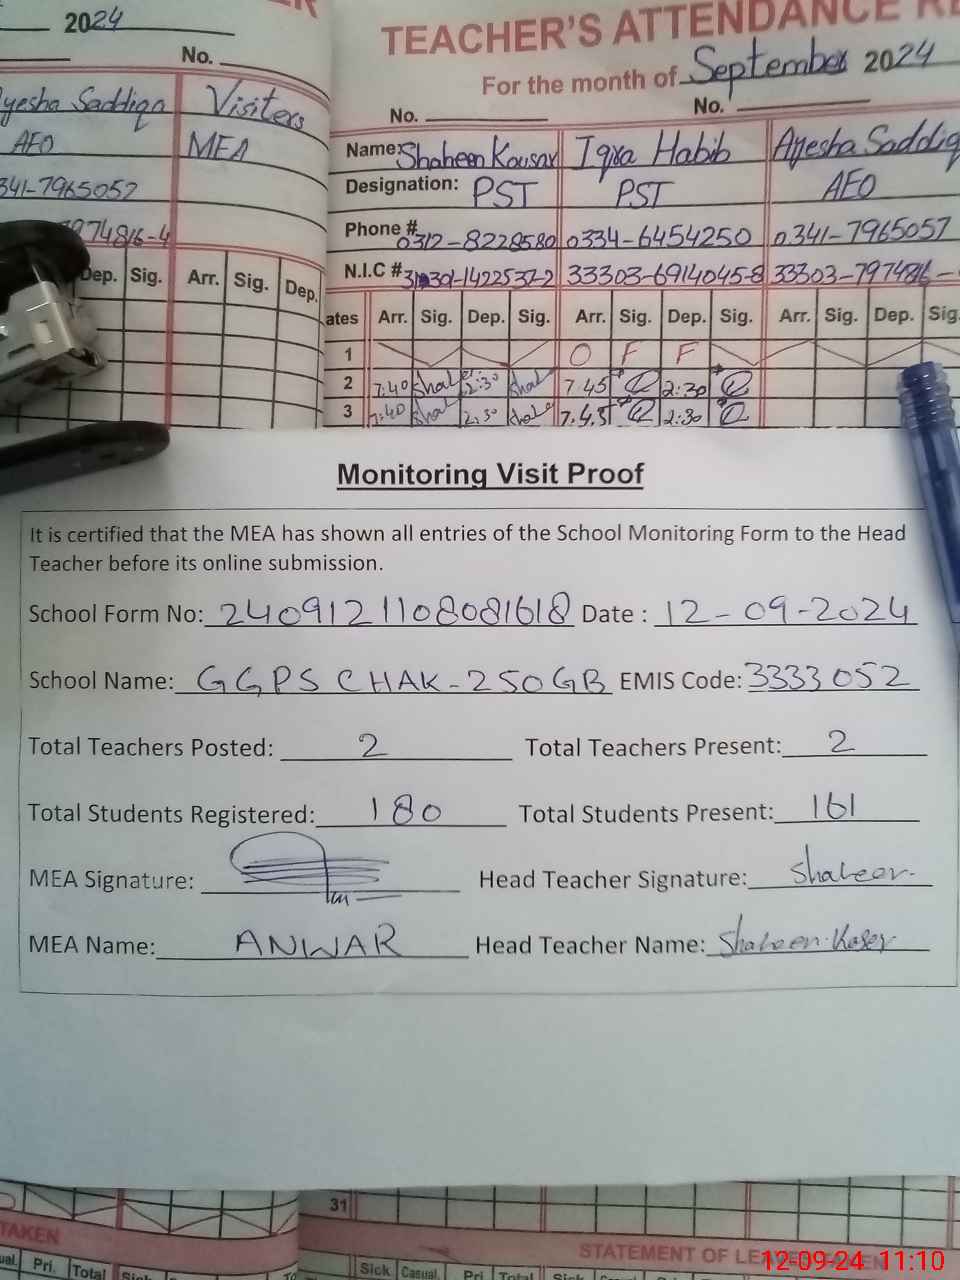 2024
No.
Ayesha Saddiqa Visiters
AEO MEA
341-7965057
7974816-4
Dep. Sig. Arr. Sig. Dep.
TEACHER'S ATTENDANCE RE
For the month of September 2024
No. No.
Name: Shaheen Kousar Iqra Habib Ayesha Saddiq
Designation: PST PST AEO
Phone # 0312-8228580 0334-6454250 0341-7965057
N.I.C # 31301-1422537-2 33303-6914045-8 33303-7974816-
ates Arr. Sig. Dep. Sig. Arr. Sig. Dep. Sig. Arr. Sig. Dep. Sig.
1 O F F
2 7:40 2:30 7.45 2:30
3 7:40 2:30 7.45 2:30
Monitoring Visit Proof
It is certified that the MEA has shown all entries of the School Monitoring Form to the Head
Teacher before its online submission.
School Form No: 2409121108081618 Date : 12-09-2024
School Name: GGPS CHAK-250GB EMIS Code: 3333052
Total Teachers Posted: 2 Total Teachers Present: 2
Total Students Registered: 180 Total Students Present: 161
MEA Signature: Head Teacher Signature: Shaheen
MEA Name: ANWAR Head Teacher Name: Shaheen Koser
31
TAKEN
STATEMENT OF LE
ual. Pri. Total Sick
Sick Casual. Pri. Total Sick
12-09-24 11:10